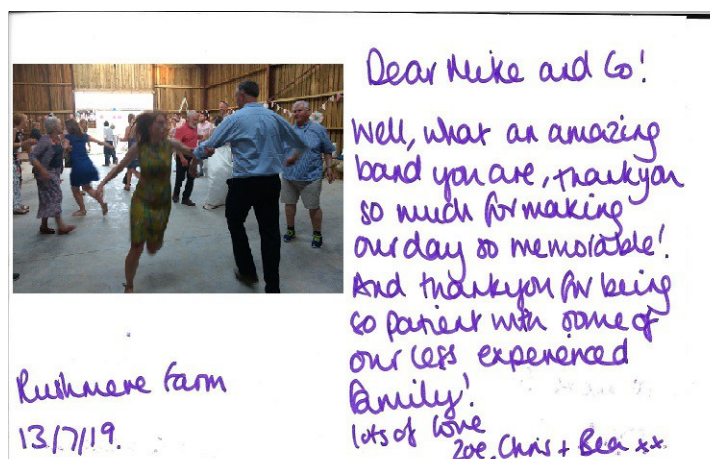 Dear Mike and Co!
Well, what an amazing
band you are, thankyou
so much for making
our day so memorable!
And thankyou for being
so patient with some of
our less experienced
family!
lots of love
Zoe, Chris + Bea xx
Rushmere Farm
13/7/19.